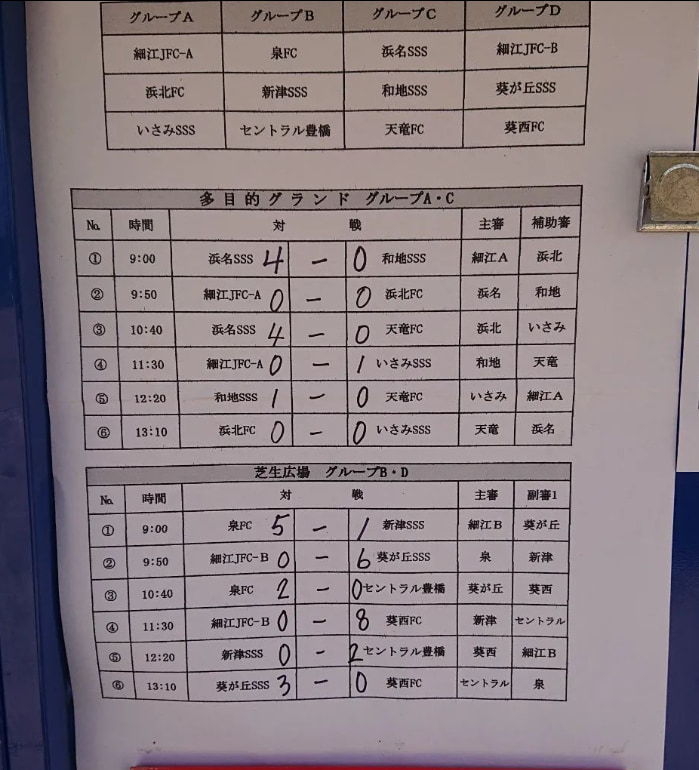 グループA グループB グループC グループD
細江JFC-A 泉FC 浜名SSS 細江JFC-B
浜北FC 新津SSS 和地SSS 葵が丘SSS
いさみSSS セントラル豊橋 天竜FC 葵西FC
多目的グランド グループA・C
No. 時間 対 戦 主審 補助審
① 9:00 浜名SSS 4 - 0 和地SSS 細江A 浜北
② 9:50 細江JFC-A 0 - 0 浜北FC 浜名 和地
③ 10:40 浜名SSS 4 - 0 天竜FC 浜北 いさみ
④ 11:30 細江JFC-A 0 - 1 いさみSSS 和地 天竜
⑤ 12:20 和地SSS 1 - 0 天竜FC いさみ 細江A
⑥ 13:10 浜北FC 0 - 0 いさみSSS 天竜 浜名
芝生広場 グループB・D
No. 時間 対 戦 主審 副審1
① 9:00 泉FC 5 - 1 新津SSS 細江B 葵が丘
② 9:50 細江JFC-B 0 - 6 葵が丘SSS 泉 新津
③ 10:40 泉FC 2 - 0 セントラル豊橋 葵が丘 葵西
④ 11:30 細江JFC-B 0 - 8 葵西FC 新津 セントラル
⑤ 12:20 新津SSS 0 - 2 セントラル豊橋 葵西 細江B
⑥ 13:10 葵が丘SSS 3 - 0 葵西FC セントラル 泉